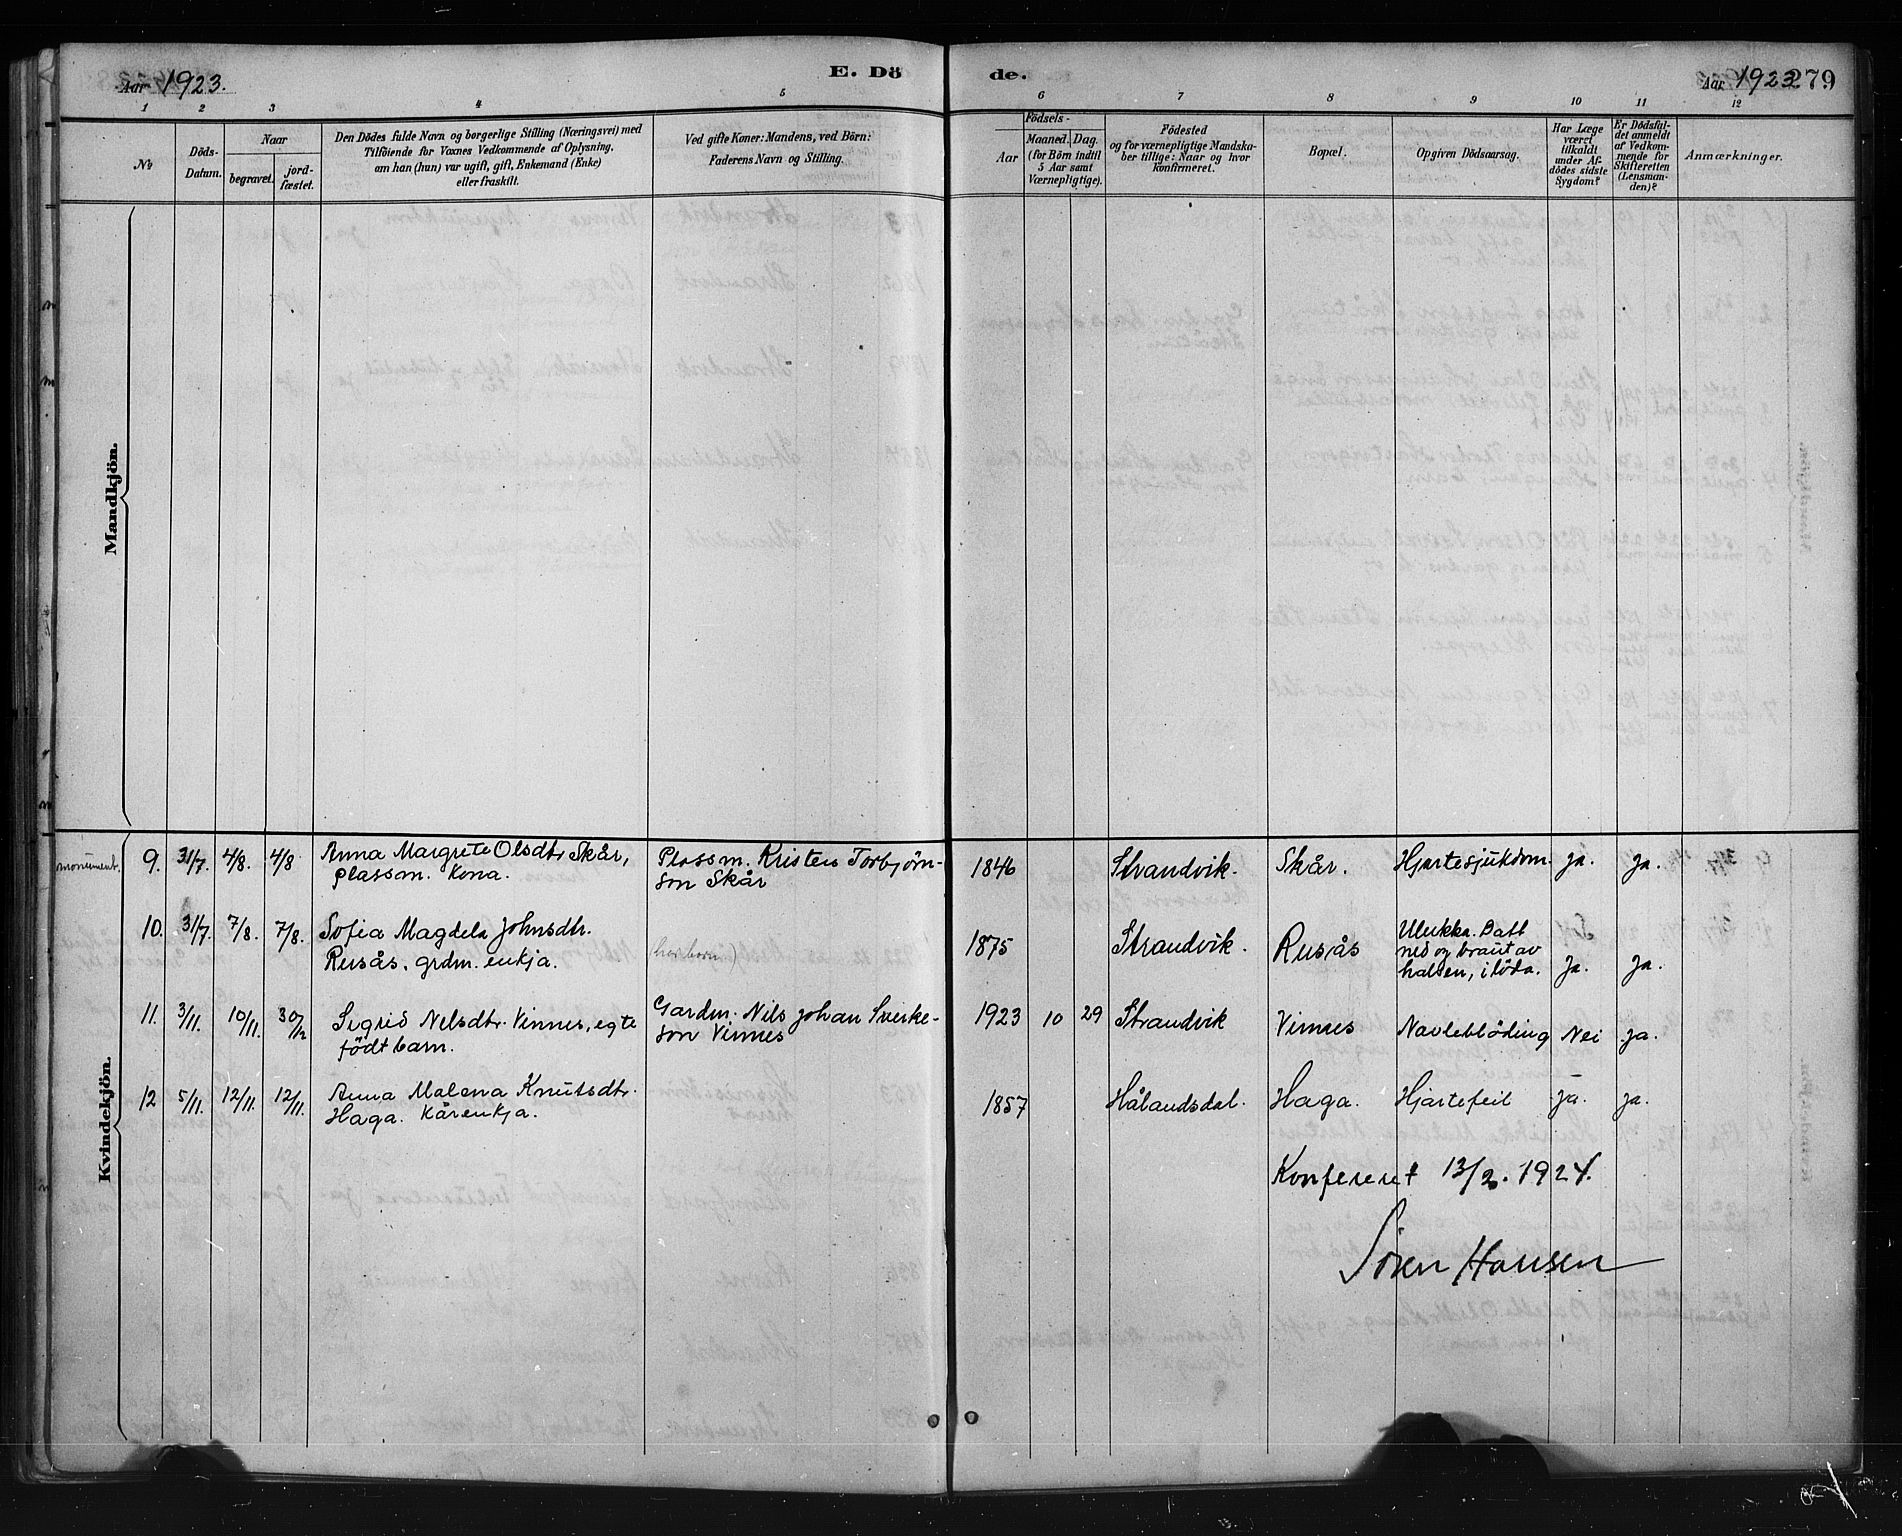 Aar 1923.
E. Dö
de.
Aar 1923
279
1 2 3 4 5 6 7 8 9 10 11 12
No
Döds-
Datum.
Naar
begravet.
jord-
fæstet.
Den Dödes fulde Navn og borgerlige Stilling (Næringsvei) med
Tilföiende for Voxnes Vedkommende af Oplysning.
om han (hun) var ugift, gift, Enkemand (Enke)
eller fraskilt.
Ved gifte Koner: Mandens, ved Börn:
Faderens Navn og Stilling.
Födsels-
Aar
Maaned.
Dag.
(for Börn indtil
5 Aar samt
Værnepligtige).
Födested
og for værnepligtige Mandska-
ber tillige: Naar og hvor
konfirmeret.
Bopæl.
Opgiven Dödsaarsag.
Har Læge
været
tilkaldt
under Af-
dödes sidste
Sygdom?
Er Dödsfal-
det anmeldt
af Vedkom-
mende for
Skifteretten
(Lensman-
den)?
Anmærkninger.
Mandkjön.
Kvindekjön.
monument.
9. 31/7. 4/8. 4/8 Anna Margrete Olsdtr. Skår,
plassm. kona.
Plassm. Kristen Torbjörn-
son Skår
1846 Strandvik. Skår. Hjartesjukdom. ja. ja.
10. 31/7. 7/8. 7/8. Sofia Magdela Johnsdtr.
Rusås. grdm. enkja.
1875 Strandvik. Rusås
Ulukka. Datt
ned og braut av
halsen, i löda. ja. ja.
11. 3/11. 10/11. 30/12 Sigrid Nilsdtr. Vinnes, egte
födt barn.
Gardm. Nils Johan Sverke-
son Vinnes
1923 10 29 Strandvik Vinnes Navleblöding Nei ja.
12 5/11. 12/11. 12/11. Anna Malena Knutsdtr.
Haga. kårenkja.
1857 Hålandsdal. Haga. Hjartefeil ja. ja.
Konfereret 13/2. 1924.
Sören Hansen